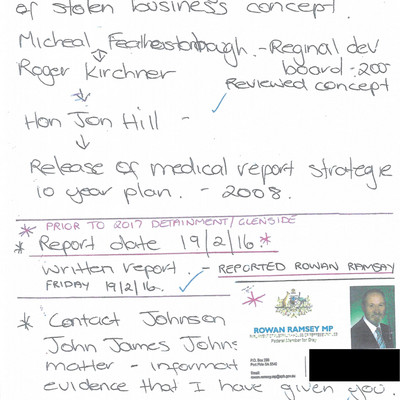 of stolen business concept.
Micheal Featherstonhaugh. - Reginal dev
Roger Kirchner board - 200
Reviewed concept
Hon Jon Hill -
Release of medical report strategie
10 year plan. - 2008.
* PRIOR TO 2017 DETAINMENT/GLENSIDE
* Report date 19/2/16 *
written report. - REPORTED ROWAN RAMSAY
FRIDAY 19/2/16.
*
ROWAN RAMSEY MP
Federal Member for Grey
P.O. Box 296
Port Pirie SA 5540
Email:
* Contact Johnson
John James Johns
matter - informat
evidence that I have given you.